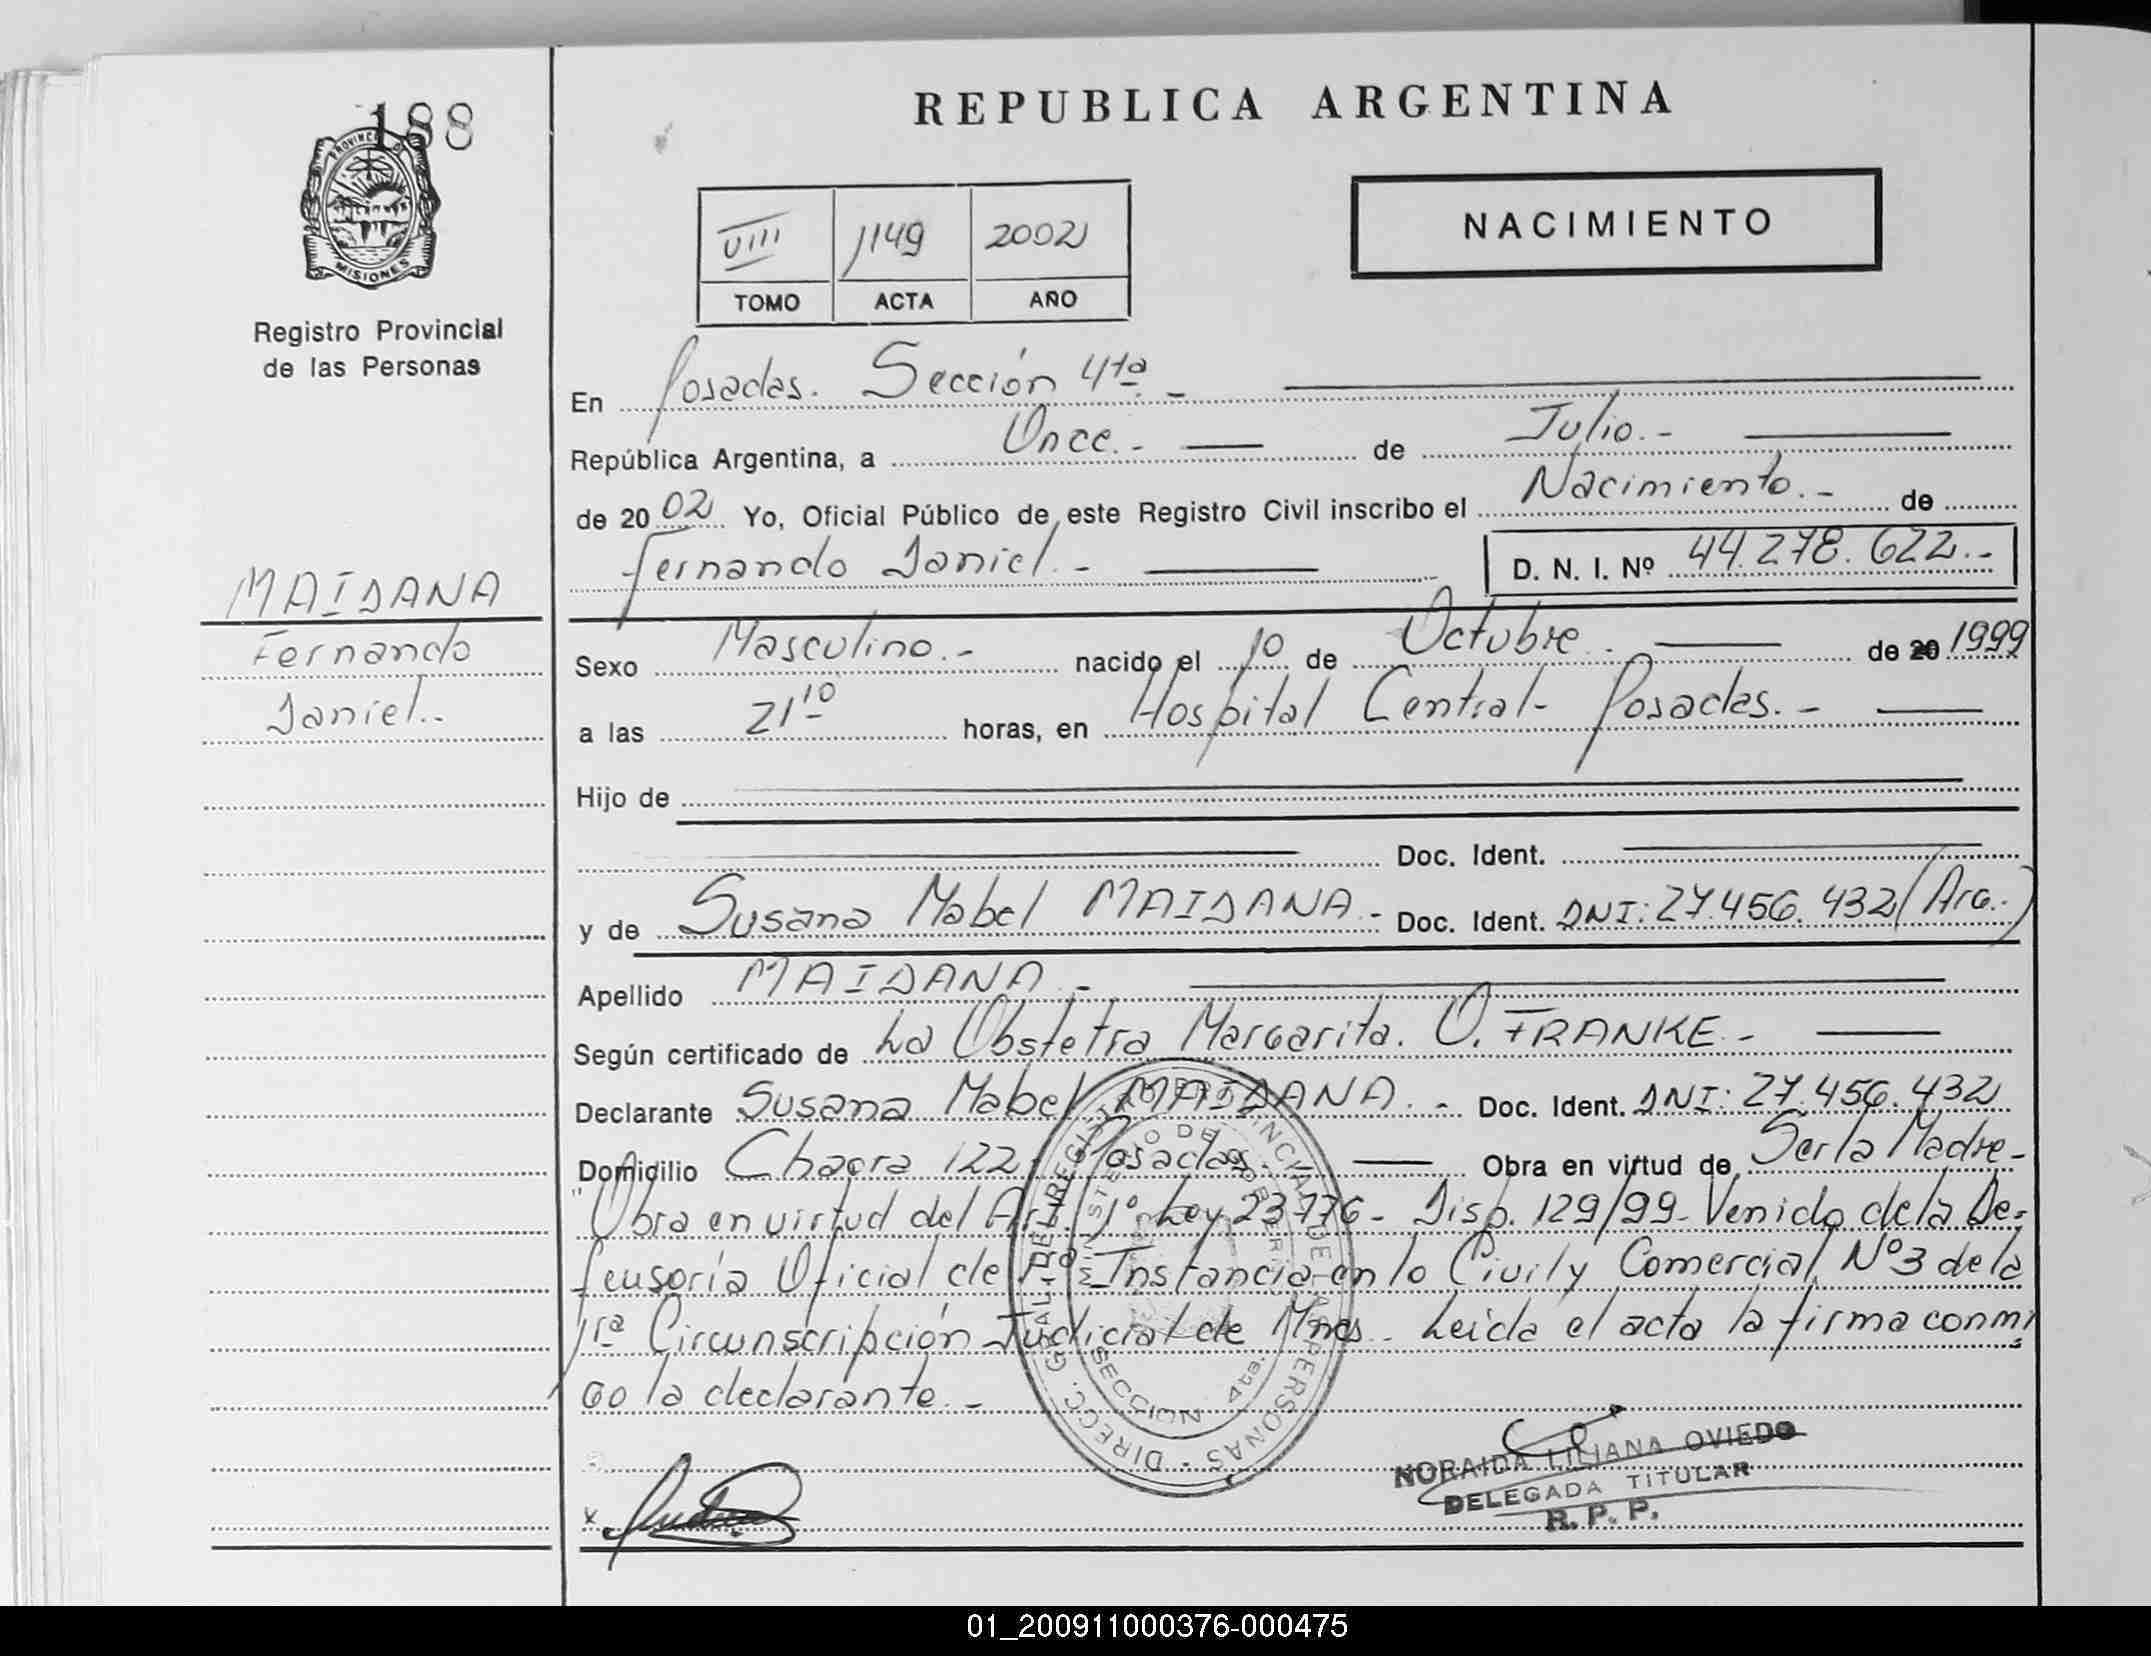 REPUBLICA ARGENTINA
188
PROVINCIA DE
MISIONES
Registro Provincial
de las Personas
NACIMIENTO
VIII 1149 2002
TOMO ACTA AÑO
En Posadas. Sección 4ta.-
República Argentina, a Once.- de Julio.-
de 2002 Yo, Oficial Público de este Registro Civil inscribo el Nacimiento.- de
Fernando Daniel.- D. N. I. Nº 44.278.622.-
MAIDANA
Fernando
Daniel.-
Sexo Masculino.- nacido el 10 de Octubre. de 20 1999
a las 21 10 horas, en Hospital Central- Posadas.-
Hijo de
Doc. Ident.
y de Susana Mabel MAIDANA.- Doc. Ident. DNI: 27.456.432 (Arg.-)
Apellido MAIDANA.-
Según certificado de La Obstetra Margarita. O. FRANKE.-
Declarante Susana Mabel MAIDANA.- Doc. Ident. DNI: 27.456.432
Domicilio Chacra 122- Posadas.- Obra en virtud de Ser la Madre-
"Obra en virtud del Art. 1º Ley 23776- Disp. 129/99- Venido de la De-
fensoría Oficial de 1ra Instancia en lo Civil y Comercial Nº3 de la
1ra Circunscripción Judicial de Mnes.- Leída el acta la firma conmi
go la declarante.-
DIRECC. GRAL. DEL REGISTRO PROVINCIAL DE LAS PERSONAS
MINISTERIO DE GOBIERNO
SECCION 4ta.
NORAIDA LILIANA OVIEDO
DELEGADA TITULAR
R. P. P.
x
01_200911000376-000475